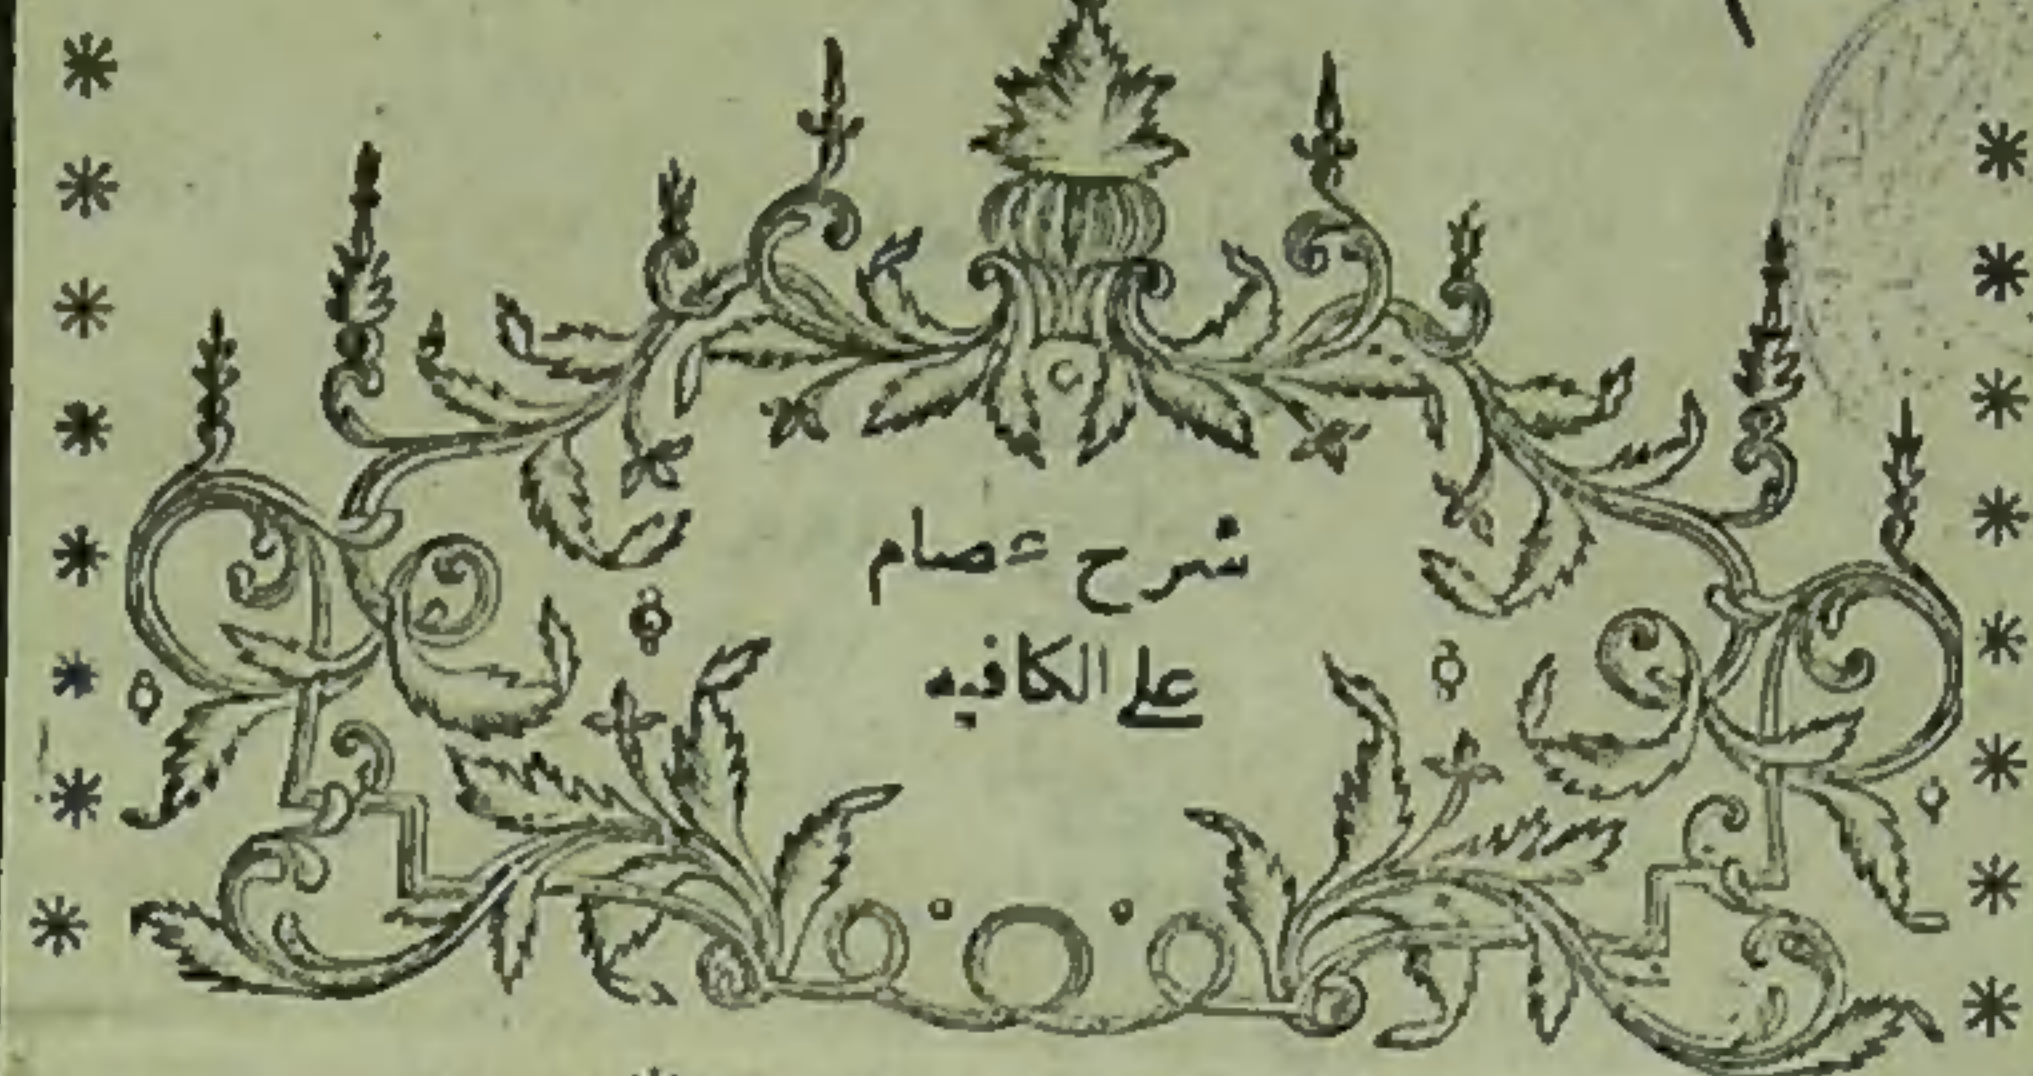 شرح عصام
على الكافيه